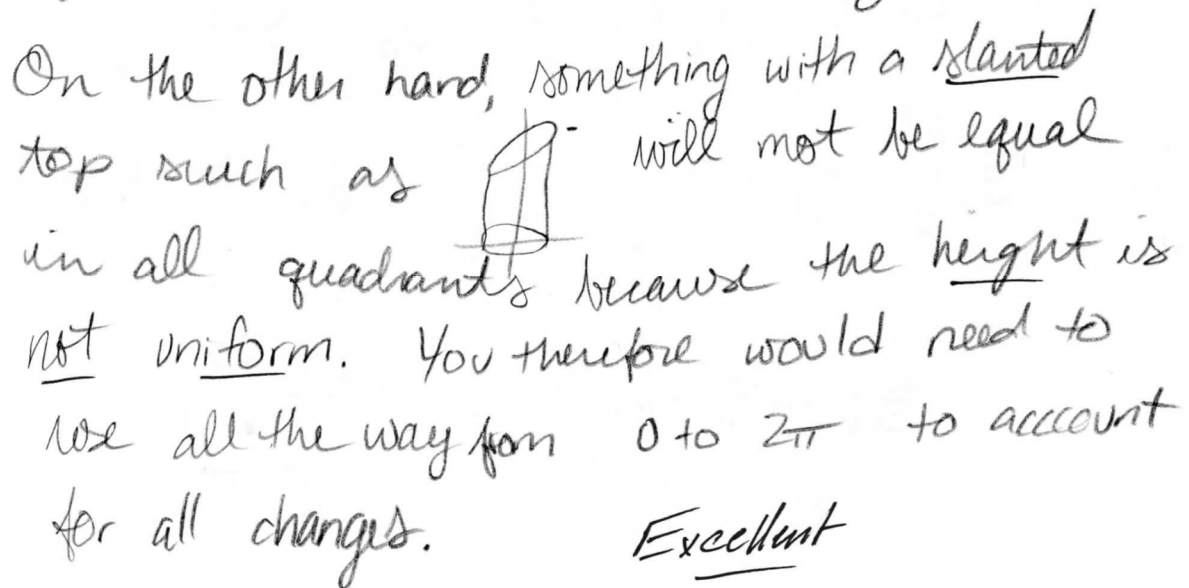 On the other hand, something with a slanted
top such as will not be equal
in all quadrants because the height is
not uniform. You therefore would need to
use all the way from 0 to 2π to acccount
for all changes.
Excellent